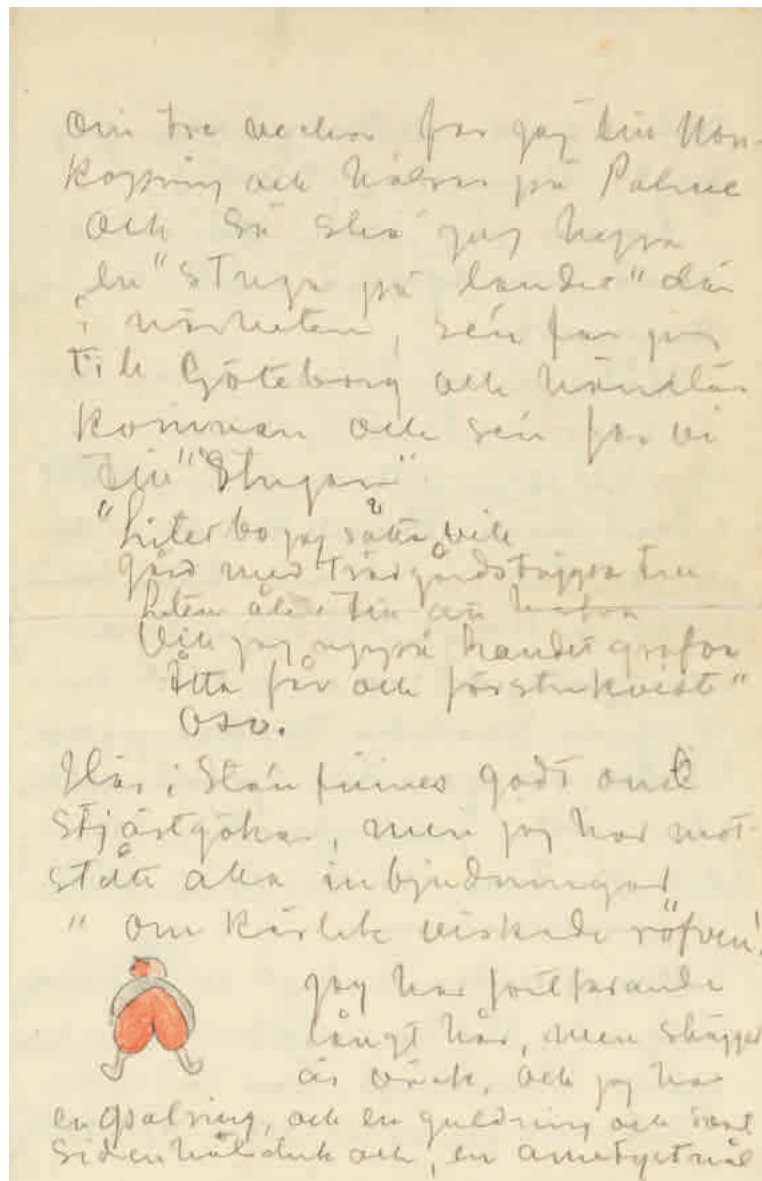 Om tre veckor far jag till Norr-
köping och hälsar på Palme
och så ska jag hyra
en "stuga på landet" där
i närheten, sén far jag
till Göteborg och
kommer och sén far vi
till "Stugan"
"Litet bo jag sätta vill
gård med trädgårdstäppa till
liten åker till att
Vill jag också
Åtta får och förstukvist"
osv.
Här i Stán finnes godt om
stjärtgökar, men jag har mot-
stått alla inbjudningar
" om kärlek viskade röfven!
jag har fortfarande
långt hår, men skägget
är väck, och jag har
en opalring, och en guldring och svart
sidenhalsduk och, en ametystnål